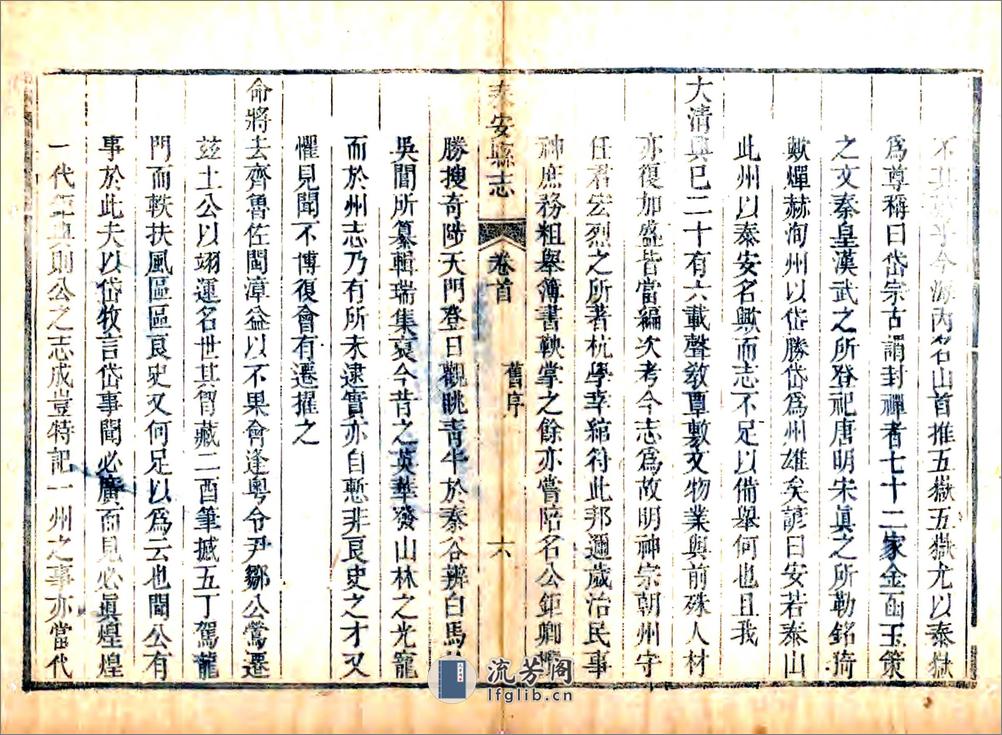 今海內名山首推五嶽五嶽尤以泰嶽
爲尊稱曰岱宗古謂封禪者七十二家金函玉策
之文秦皇漢武之所登祀唐明宋眞之所勒銘猗
歟燀赫洵州以岱勝岱爲州雄矣諺曰安若泰山
此州以泰安名歟而志不足以備舉何也且我
大清興已二十有六載聲敎覃敷文物業與前殊人材
亦復加盛皆當編次考今志爲故明神宗朝州守
任君宏烈之所者杭學幸綰符此邦邇歲治民事
神庶務粗舉簿書鞅掌之餘亦嘗陪名公鉅卿
泰安縣志
卷首
舊序
六
勝搜奇陟天門登日觀眺靑牛於秦谷辨白馬於
吳閶所纂輯瑞集裒今昔之英華發山林之光寵
而於州志乃有所未逮實亦自慙非良史之才又
懼見聞不博復會有遷擢之
命將去齊魯佐閩漳益以不果會逢粤令尹鄒公鶯遷
茲土公以翊運名世其智藏二酉筆撼五丁駕龍
門而軼扶風區區良史又何足以爲云也聞公有
事於此夫以岱牧言岱事聞必廣而見必眞煌煌
一代
則公之志成豈特記一州之事亦當代
流芳阁
lfglib.cn